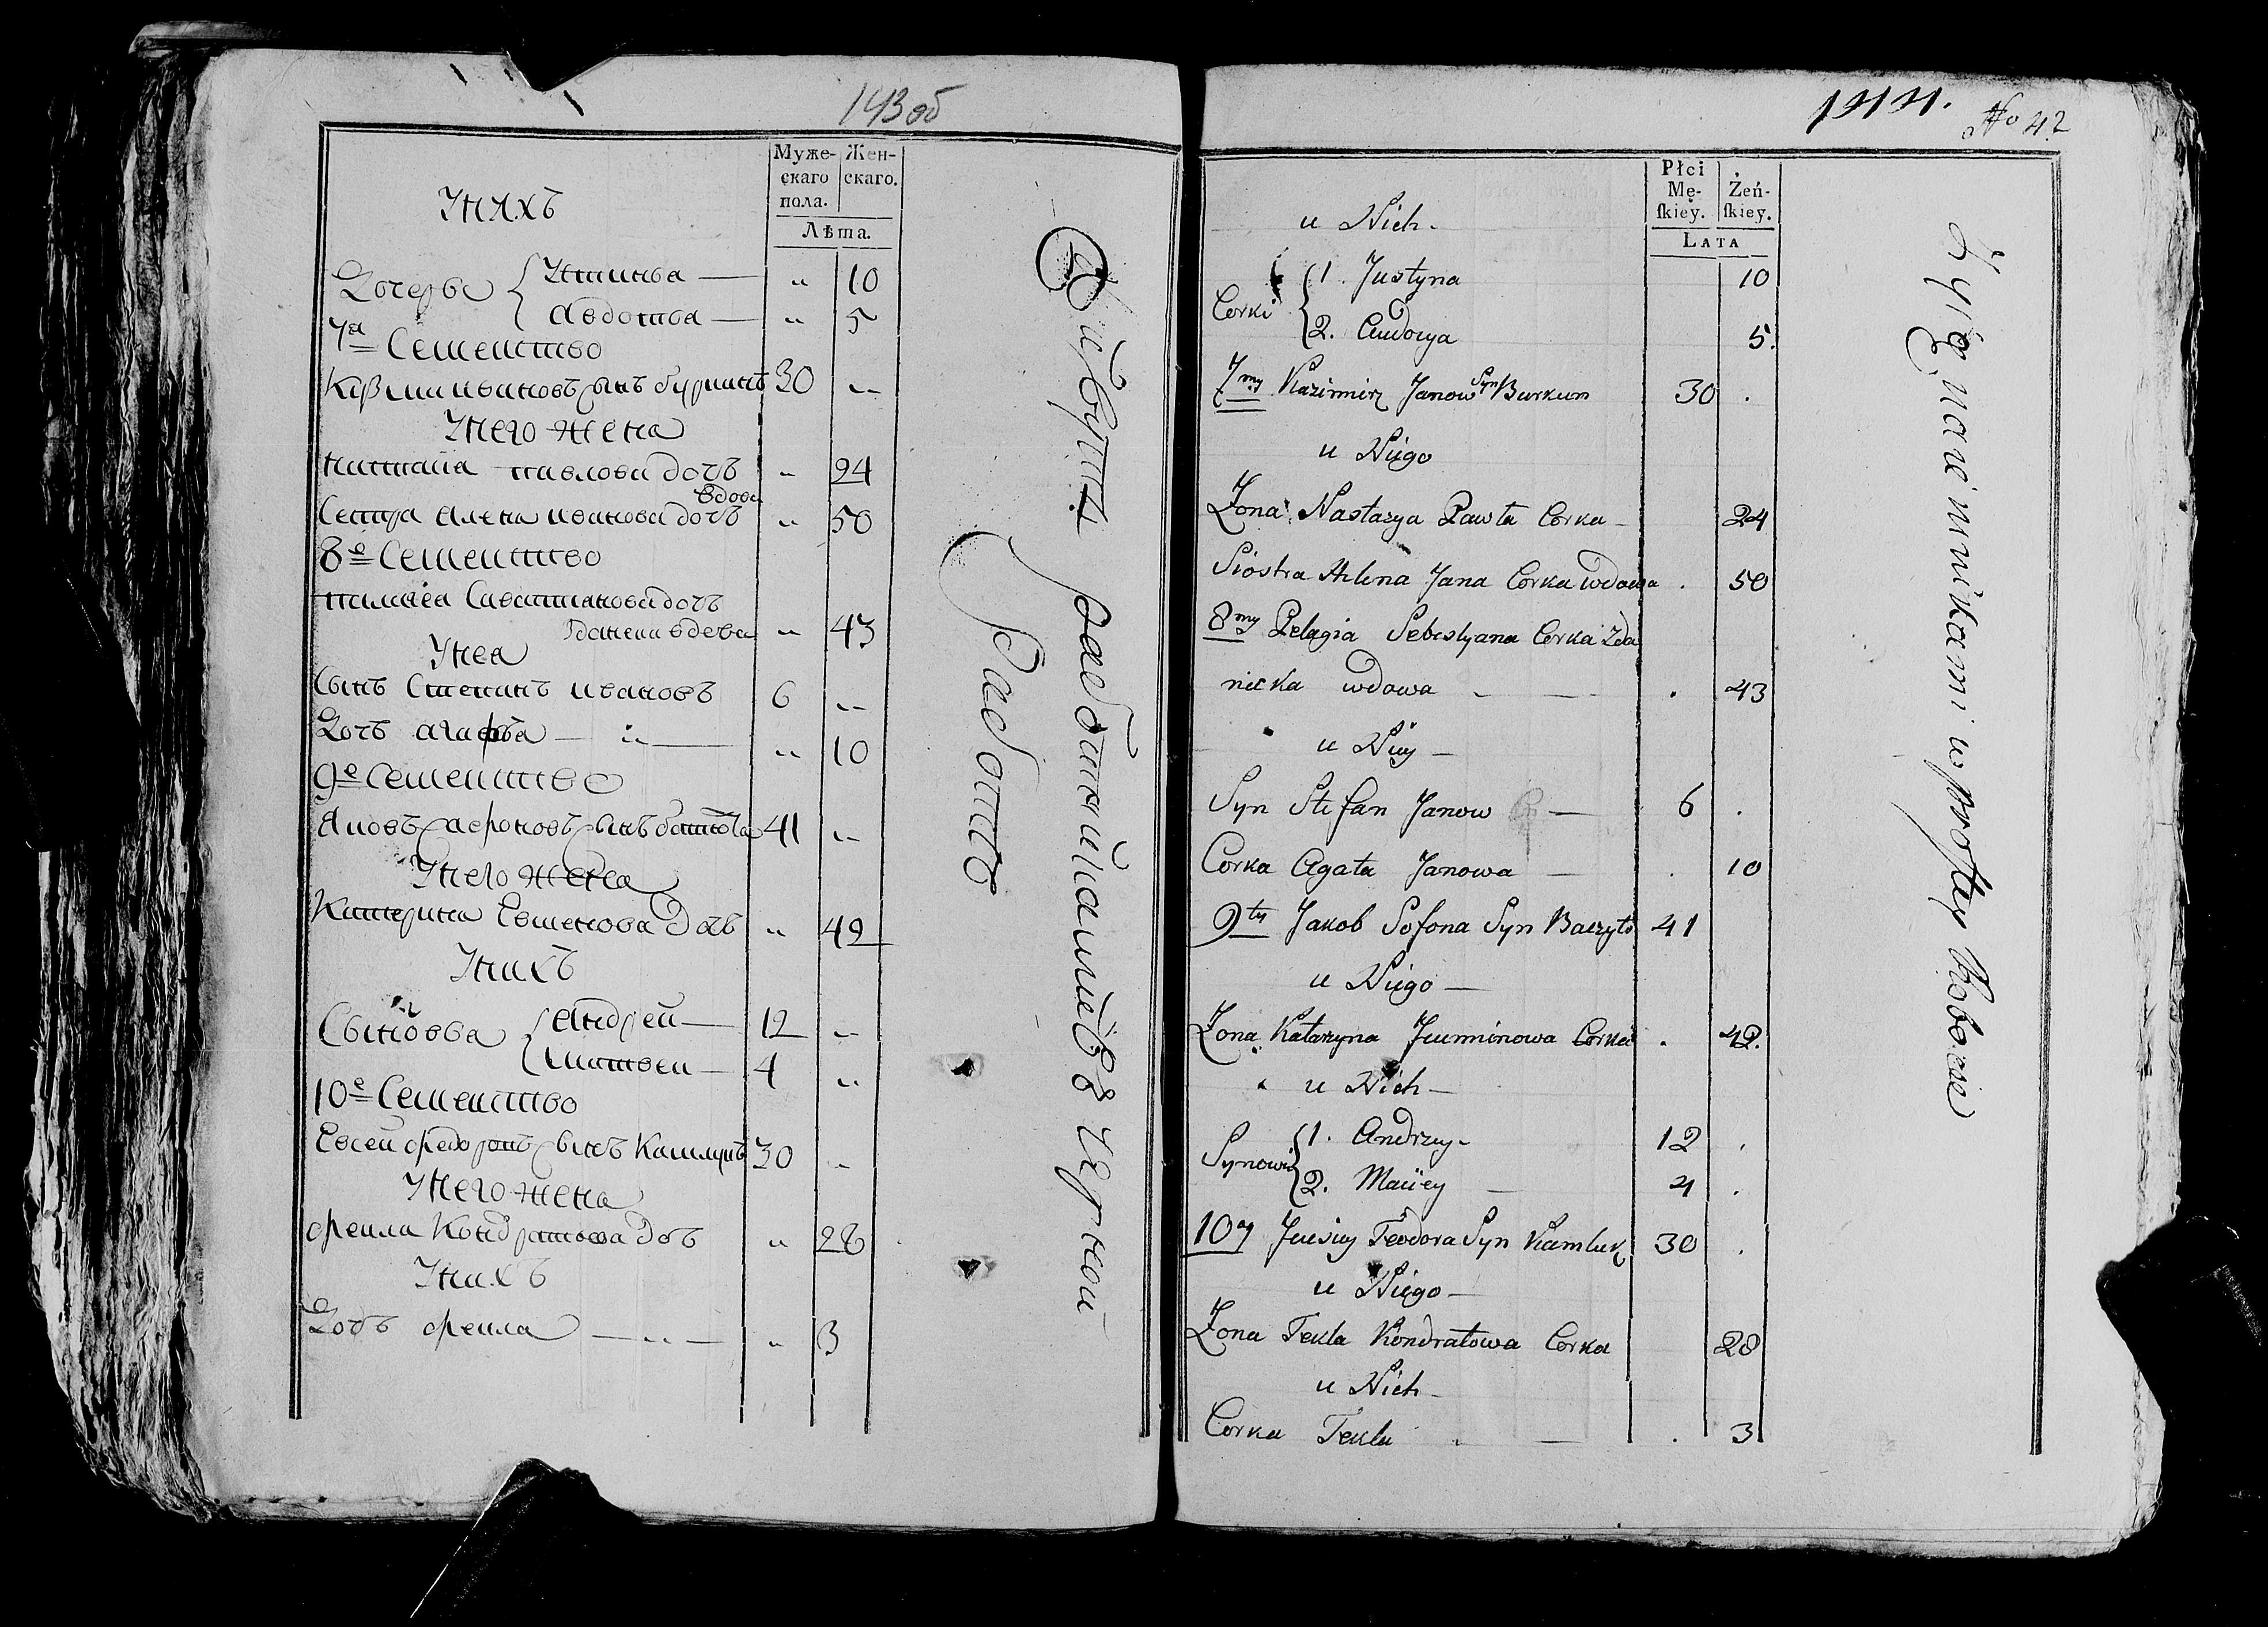 143 об
Муже-
скаго
пола.
Жен-
скаго.
Лѣта.
У нихъ
Дочерьи { Устинья — " 10
Авдотья — " 5
7а Семейство
Кузма Ивановъ сынъ Буркинъ 30 "
У него жена
Настасия Павлова дочь " 24
вдова
Сестра Алена Иванова дочь " 50
8е Семейство
Палагея Савастианова дочь
вдова " 43
У нея
Сынъ Степанъ Ивановъ 6 "
Дочь Агафья — " — " 10
9е Семейство
Яковъ сынъ 41 "
У него жена
Катерина дочь " 42
У нихъ
Сыновья { Андрей — 12 "
Матвеи — 4 "
10е Семейство
Евсей Федоровъ сынъ Камлукъ 30 "
У него жена
Фекла Кондратова дочь " 28
У нихъ
Дочь Фекла — " — " 3
работниками въ черной
работѣ
1444.
No 42
Płci
Mę-
skiey.
Żeń-
skiey.
LATA
u Nich -
Corki { 1. Justyna 10
2. Audocya 5.
7my Kazimirz Janow Syn Burkun 30 .
u Niego
Zona Nastazya Pawła Corka - 24
Siostra Helena Jana Corka wdowa . 50
8my Pelagia Sebestyana Corka Zda
niecka wdowa - — . 43
u Niey —
Syn Stefan Janow — 6 .
Corka Agata Janowa — . 10
9ty Jakob Sofona Syn Baczyło 41
u Niego —
Zona Katarzyna Jeuminowa Corka . 42.
u Nich —
Synowie { 1. Andrzey - 12 .
2. Maciey — 4 .
10y Jewsiey Teodora Syn Kamluk 30 .
u Niego —
Zona Tekla Kondratowa Corka 28
u Nich -
Corka Tekla . — . 3
Żyią naiemnikami w prostey Robocie